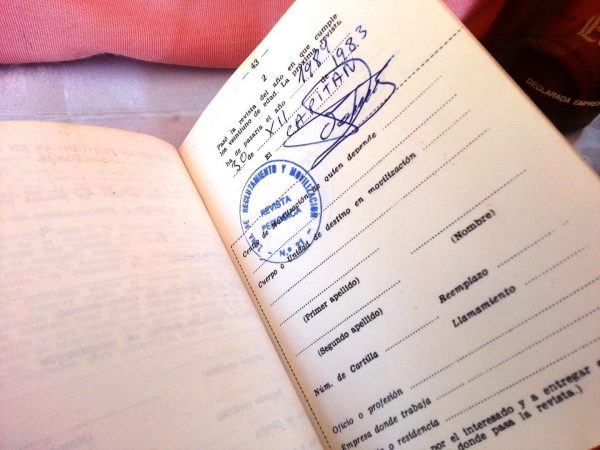 — 43 —
2
Pasó la revista del año en que cumple
los veintiuno de edad. La próxima revista
ha de pasarla el año 1989
30 de XII de 1983
El CAPITAN
DE RECLUTAMIENTO Y MOVILIZACION
REVISTA
PERIODICA
Centro de Movilización de quien depende
Cuerpo o Unidad de destino en movilización
(Primer apellido) (Nombre)
(Segundo apellido) Reemplazo
Núm. de Cartilla Llamamiento
Oficio o profesión
Empresa donde trabaja
o residencia
por el interesado y a entregar
donde pasa la revista.)
DECLARADA EMPRE